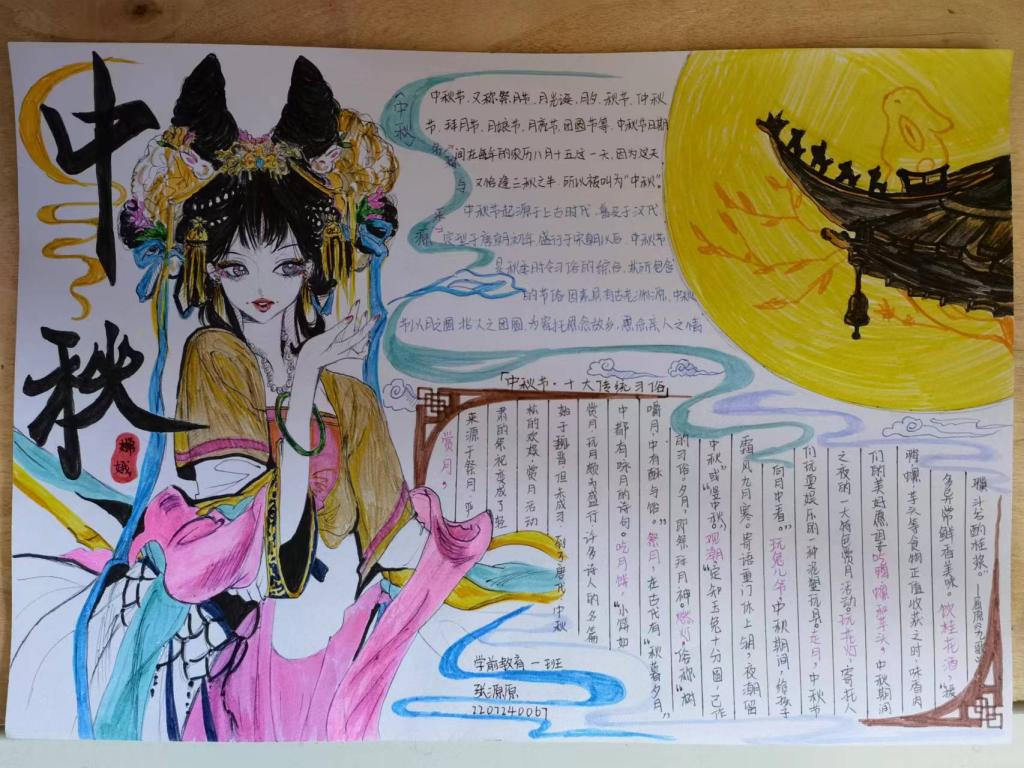 中秋
嫦娥
《中秋
与来源
中秋节，又称祭月节、月光诞、月夕、秋节、仲秋
节、拜月节、月娘节、月亮节、团圆节等，中秋节日期
间在每年的农历八月十五这一天，因为这天
又恰逢三秋之半，所以被叫为“中秋”。
中秋节起源于上古时代，普及于汉代，
定型于唐朝初年，盛行于宋朝以后，中秋节
是秋季时令习俗的综合，其所包含
的节俗因素具有古老渊源，中秋
节以月之圆兆人之团圆，为寄托思念故乡，思念亲人之情
「中秋节·十大传统习俗」
赏月，
来源于祭月，严
肃的祭祀变成了轻
松的欢娱，赏月活动
始于魏晋但未成习，到了唐代，中秋
赏月，玩月颇为盛行，许多诗人的名篇
中都有咏月的诗句。吃月饼，“小饼如
嚼月，中有酥与饴。”祭月，在古代有“秋暮夕月”
的习俗。夕月，即祭拜月神。燃灯，俗称“树
中秋”或“竖中秋”。观潮，“定知玉兔十分圆，已作
霜风九月寒。寄语重门休上钥，夜潮留
向月中看。”玩兔儿爷，中秋期间，给孩子
们玩耍娱乐的一种泥塑玩具。走月，中秋节
之夜的一大特色赏月活动。玩花灯，寄托人
们的美好愿望。吃鸭、螺和芋头，中秋期间
鸭、螺、芋头等食物正值收获之时，味香肉
多异常鲜香美味。饮桂花酒，“援
骥斗兮酌桂浆”。
学前教育一班
张源原
2207240067